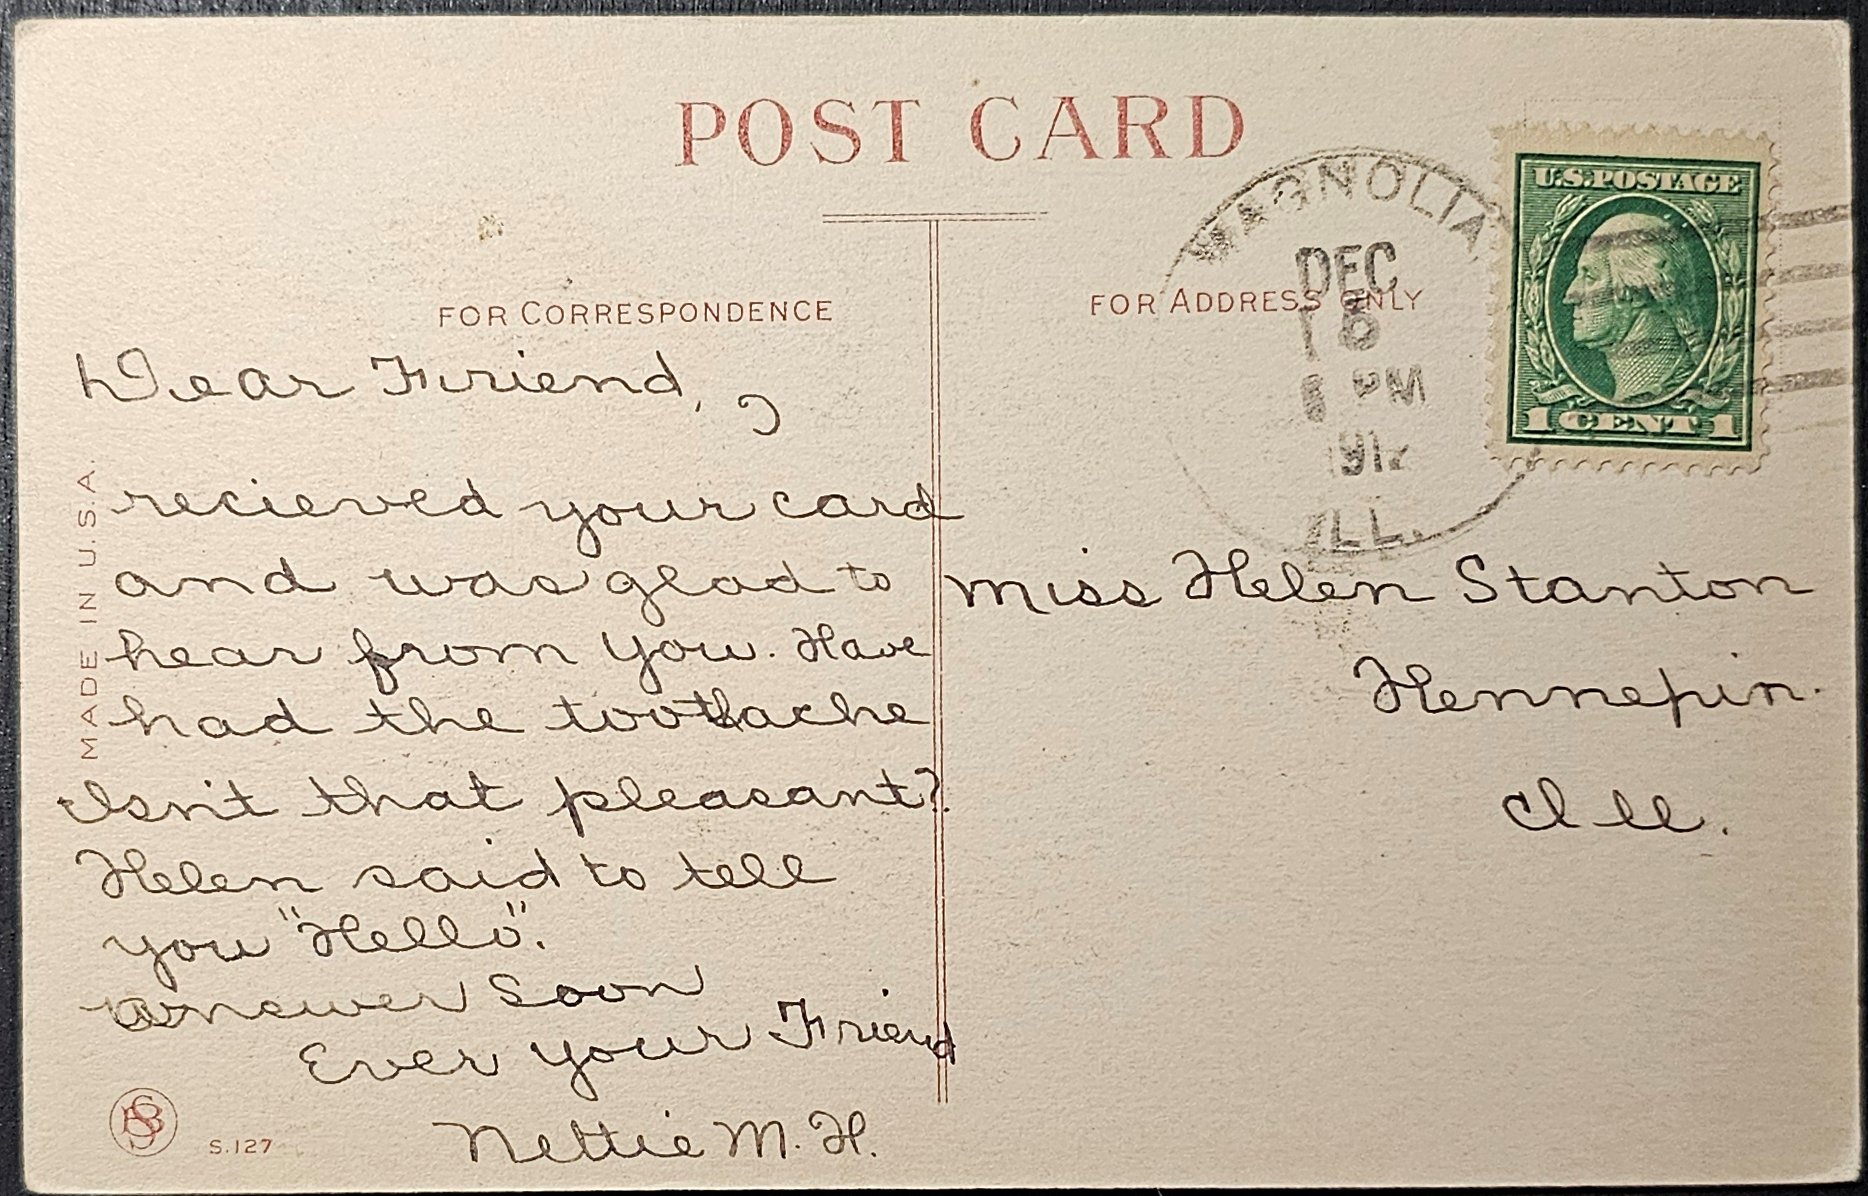 POST CARD
FOR CORRESPONDENCE
FOR ADDRESS ONLY
MAGNOLIA
DEC
6 PM
ILL.
U.S.POSTAGE
1 CENT 1
Dear Friend,
recieved your card
and was glad to
hear from you. Have
had the toothache
Isn't that pleasant?
Helen said to tell
you "Hello".
answer Soon
Ever your Friend
Nettie M. H.
Miss Helen Stanton
Hennepin.
Ill.
MADE IN U.S.A.
S.127